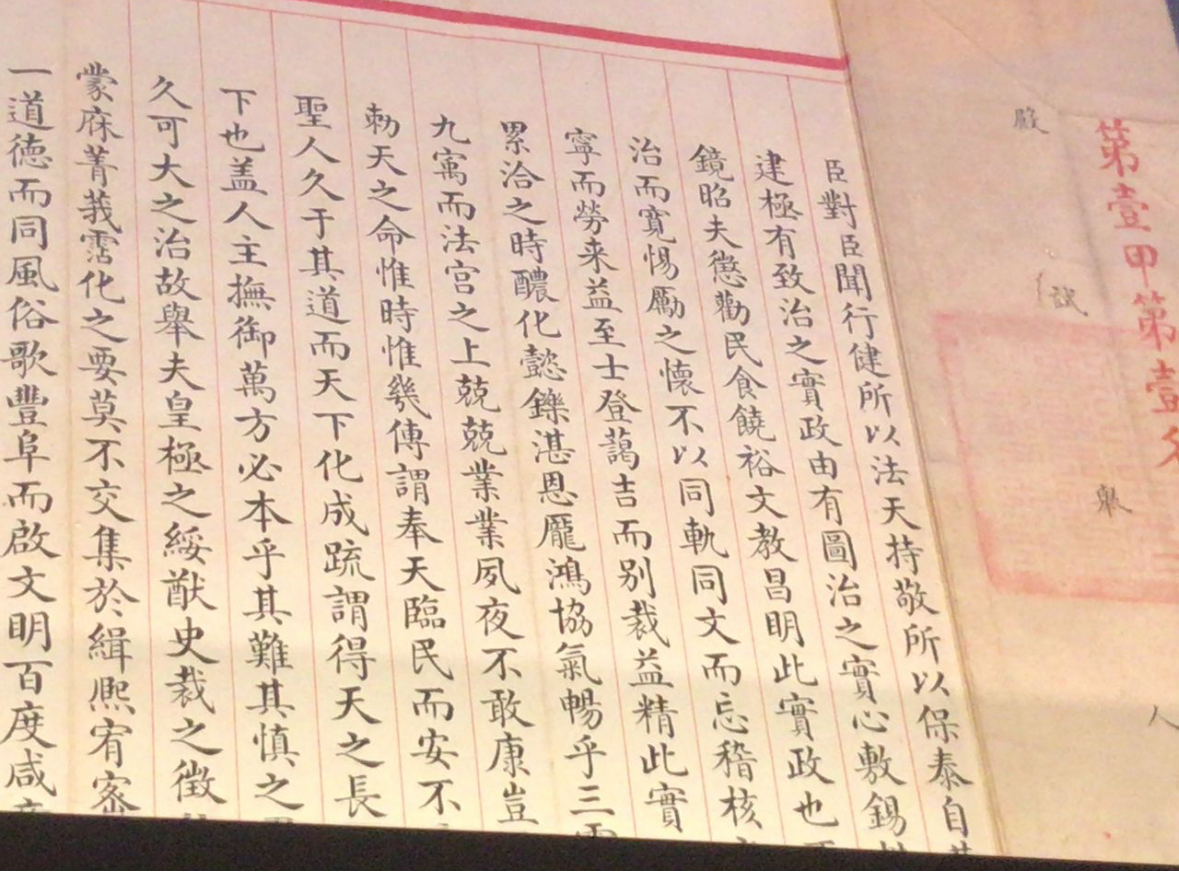 第壹甲第壹名
殿
試
舉
人
臣對臣聞行健所以法天持敬所以保泰自
建極有致治之實政由有圖治之實心敷錫
鏡昭夫懲勸民食饒裕文教昌明此實政也
治而寬惕勵之懷不以同軌同文而忘稽核
寧而勞来益至士登藹吉而别裁益精此實
累洽之時醲化懿鑠湛恩厖鴻協氣暢乎三
九寓而法宫之上兢兢業業夙夜不敢康豈
勑天之命惟時惟幾傳謂奉天臨民而安不
聖人久于其道而天下化成疏謂得天之長
下也盖人主撫御萬方必本乎其難其慎之
久可大之治故舉夫皇極之綏猷史裁之徵
蒙庥菁莪霑化之要莫不交集於緝熙宥宻
一道德而同風俗歌豐阜而啟文明百度咸